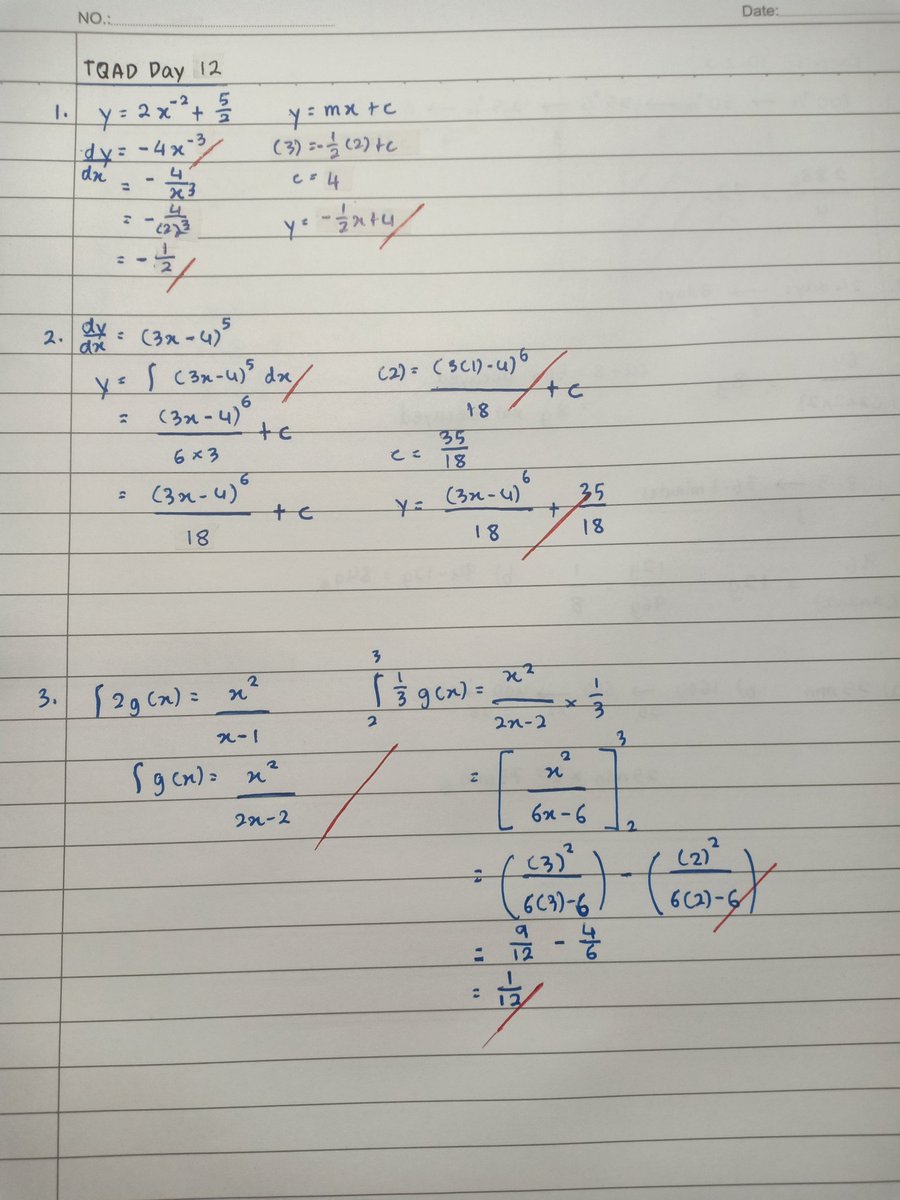 NO.:
Date:
TQAD Day 12
1. y = 2x⁻² + 5/2
dy/dx = -4x⁻³
= -4/x³
= -4/(2)³
= -1/2
y = mx + c
(3) = -1/2 (2) + c
c = 4
y = -1/2 x + 4
2. dy/dx = (3x-4)⁵
y = ∫ (3x-4)⁵ dx
= (3x-4)⁶/(6×3) + c
= (3x-4)⁶/18 + c
(2) = (3(1)-4)⁶/18 + c
c = 35/18
y = (3x-4)⁶/18 + 35/18
3. ∫ 2g(x) = x²/(x-1)
∫ g(x) = x²/(2x-2)
∫₂³ 1/3 g(x) = x²/(2x-2) × 1/3
= [x²/(6x-6)]₂³
= ((3)²/(6(3)-6)) - ((2)²/(6(2)-6))
= 9/12 - 4/6
= 1/12